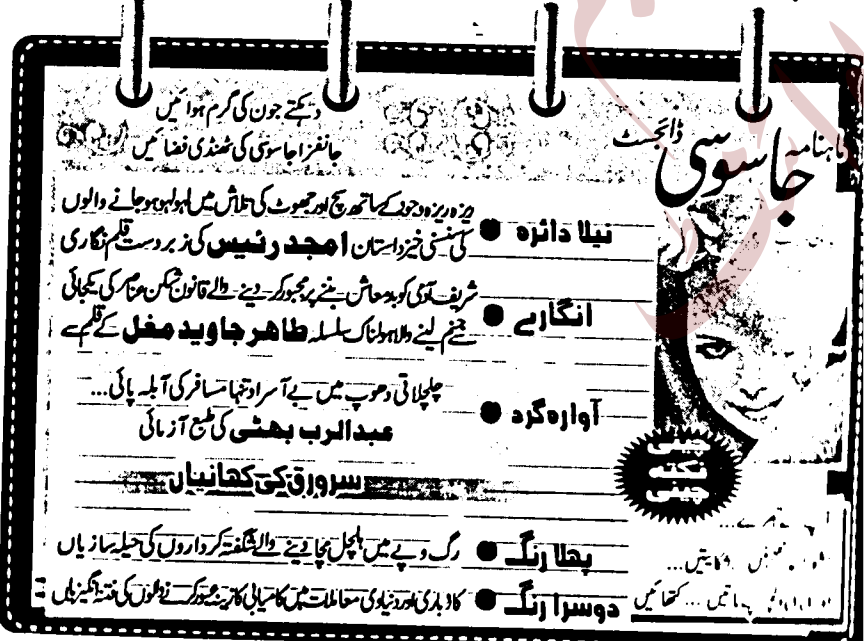 دہکتے جون کی گرم ہوائیں
جانفزا جاسوسی کی ٹھنڈی فضائیں
ماہنامہ جاسوسی ڈائجسٹ
نیلا دائرہ
ریزہ ریزہ وجود کے ساتھ سچ اور جھوٹ کی تلاش میں لہولہو ہو جانے والوں
کی سنسنی خیز داستان امجد رئیس کی زبردست قلم نگاری
انگارے
شریف آدمی کو بدمعاش بننے پر مجبور کر دینے والے قانون شکن عناصر کی یکجائی
سے جنم لینے والا ہولناک سلسلہ طاہر جاوید مغل کے قلم سے
آوارہ گرد
چلچلاتی دھوپ میں بے آسرا و تنہا مسافر کی آبلہ پائی...
عبدالرب بھٹی کی طبع آزمائی
سرورق کی کہانیاں
چینی
نکتہ
چینی
پہلا رنگ
رگ و پے میں ہلچل مچا دینے والے شگفتہ کرداروں کی حیلہ سازیاں
دوسرا رنگ
کاروباری اور دنیاوی معاملات میں کامیابی کا زینہ عبور کرنے والوں کی فتنہ انگیزیاں
باتیں... کتھائیں